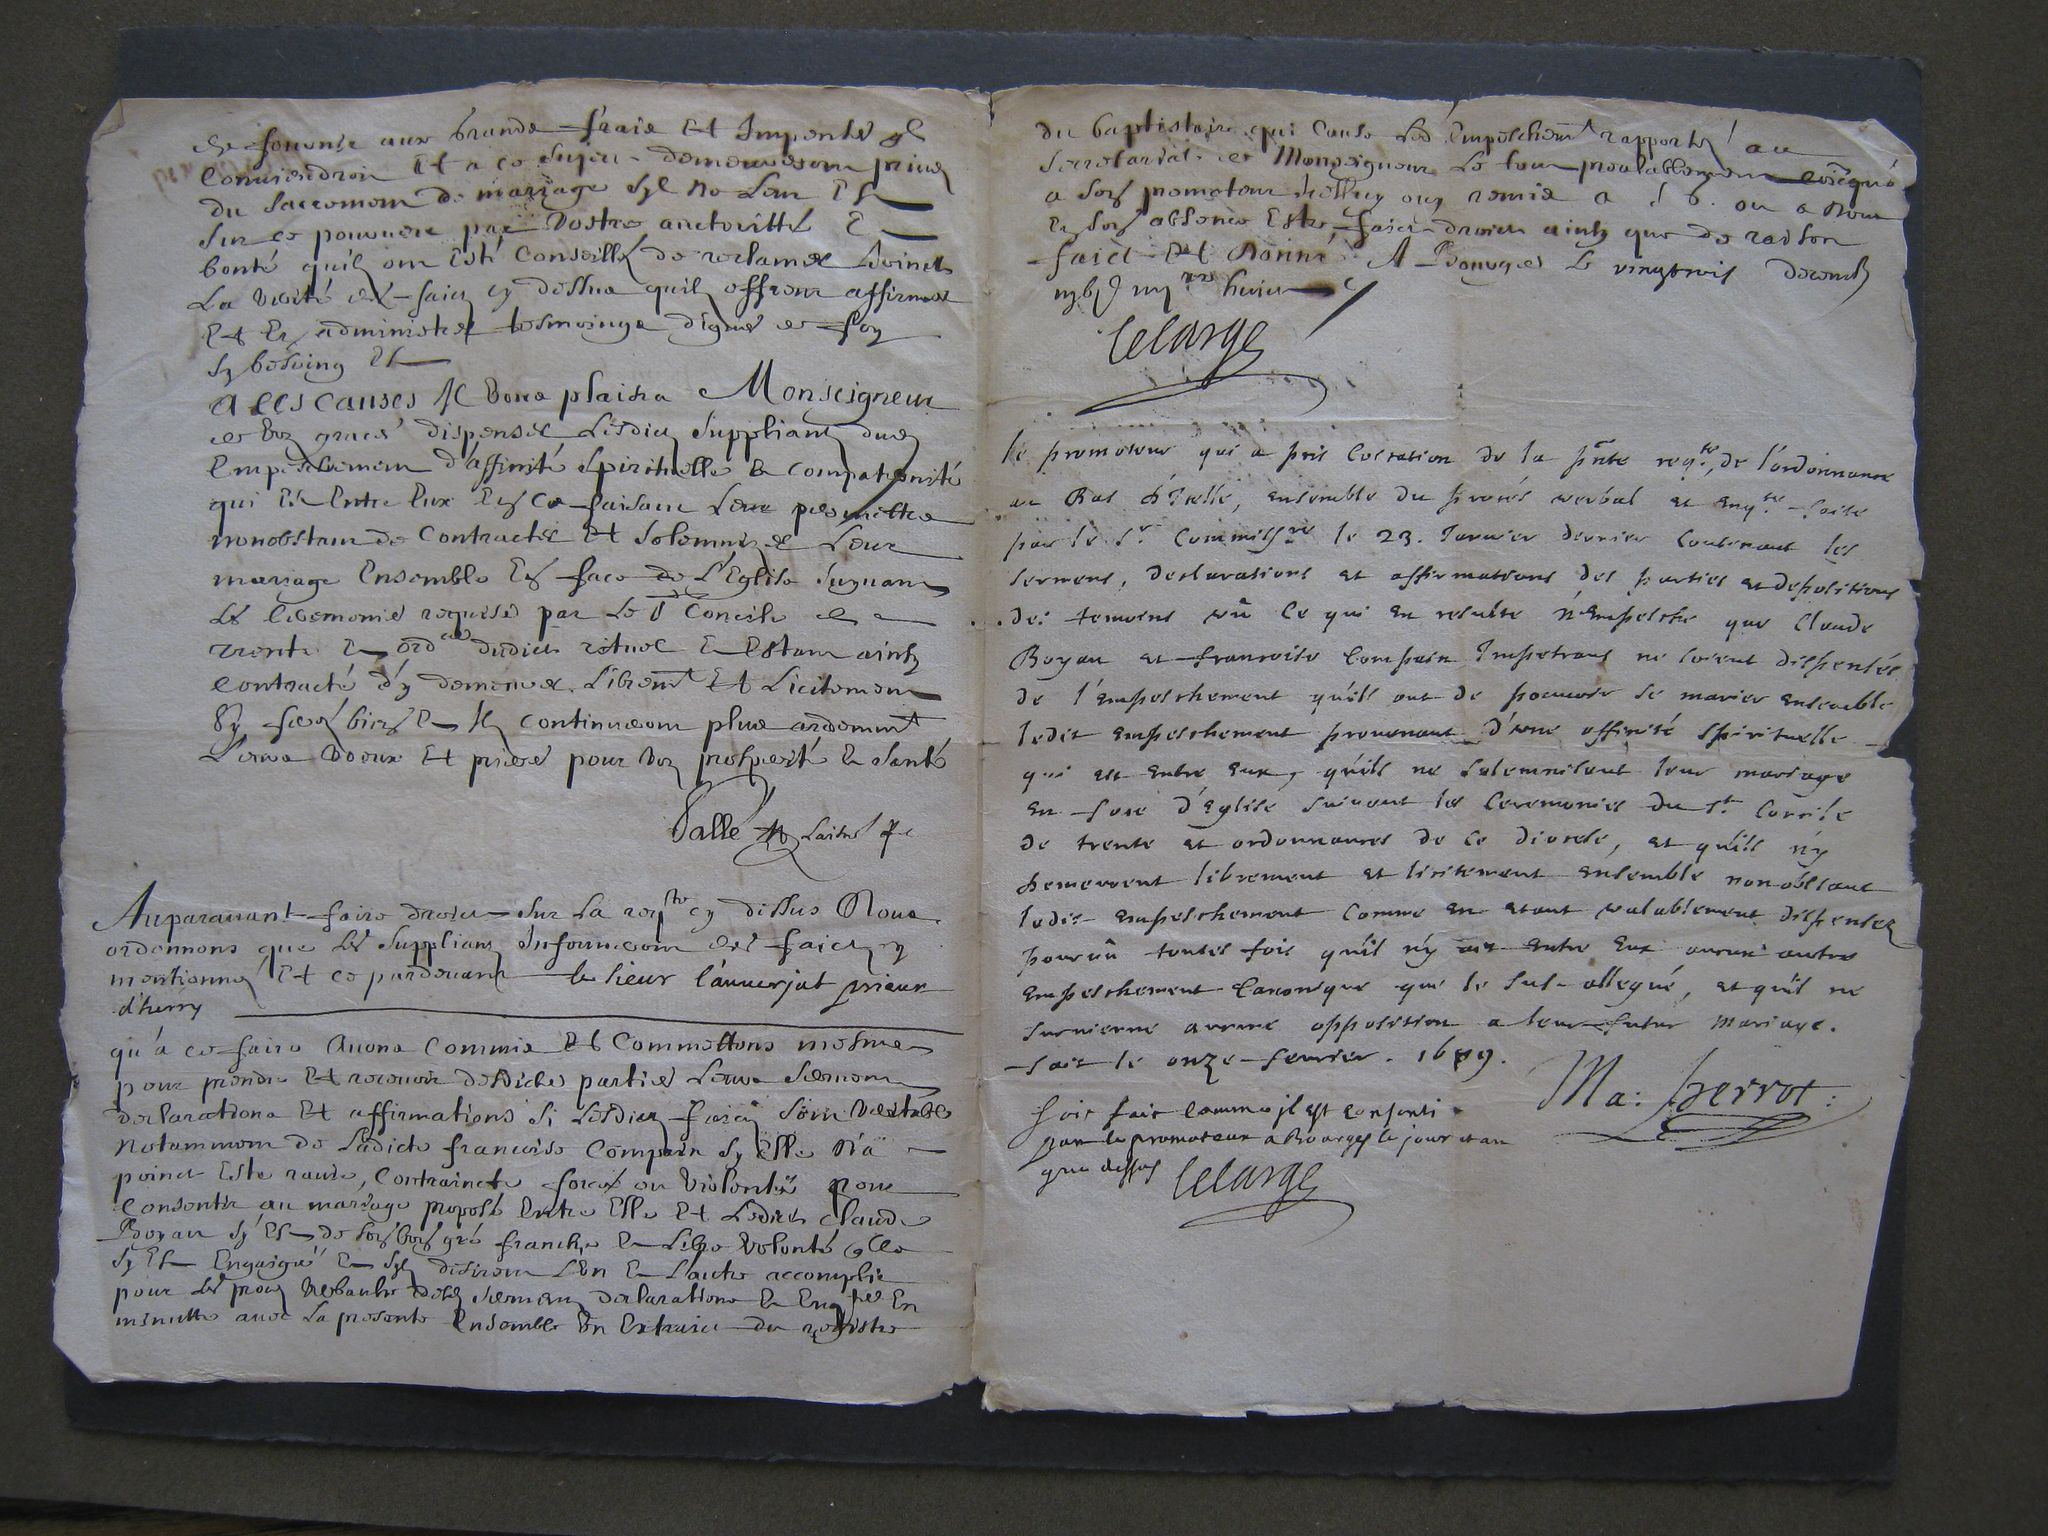 de fournir aux grands frais Et Impenses qil
Conviendroit Et a ce sujet demeureront privez
du Sacrement de mariage syl ne Leur Est
Sur ce pourveu par Vostre aucthoritté &
bonté quilz ont Esté Conseillez de reclamer
La verité des faicts cy dessus quilz offrent affirmer
Et En administrer tesmoings dignes de foy
sy besoing Est
A CES CAUSES Il Vous plaise Monseigneur
de voz graces dispenser Lesdicts Suppliantz dud
Empeschement d'affinité Spirituelle & compaternité
qui Est Entre Eux En Ce faisant Leur permettre
nonobstant de Contracter Et Solemnizer Leur
mariage Ensemble En face de L'Eglise suyvant
Les Ceremonies requises par Le St Concile de
Trente & ordces dudict & Estant ainsy
contracté d'y demeurer Librement Et Licitement
Sy ferez bien & Ilz continueront plus ardemmt
Leurs voeux Et prieres pour voz prosperité & santé
Auparavant faire droict Sur La reqte cy dessus Nous
ordonnons que Les Suppliantz Informeront des faicts y
mentionnez Et ce pardevant le sieur l'auverjat prieur
d'herry
qu'a ce faire Avons Commis Et Commettons mesmes
pour prendre Et recevoir desdictes parties Leurs Serment
declarations Et affirmations si Lesdicts faicts sont veritables
Notamment de Ladicte francoise Compain sy Elle N'a
poinct Esté ravie, contraincte forcée ou violentée pour
Consentir au mariage proposé Entre Elle Et Ledict Claude
Boyau sy Est de son bon gré franche & Libre volonté qElle
sy Est Engaigée & sylz desirent L'un & Lautre accomplir
pour Les procez verbaulx desd Sermentz declarations & Enqtes En
minutte avec La presente Ensemble Un Extraict du registre
du baptistaire qui Cause Led Empeschemt rapportez au
Secretariat de Monseigneur Le tout prealablement coïqué
a son promoteur Icelluy ouy remis a ou a Nous
En son absence Estre faict droict ainsy que de raison
faict Et donné A Bourges Le vingtrois decemb
huict
lelarge
le promoteur qui a pris Coication de la pñte reqte, de l'ordonnance
au Bas d'Icelle, ensemble du procés verbal et enqte faite
par le sr Commissre le 23. Janvier dernier Contenant les
sermens, declarations et affirmations des parties et depositions
des temoins vû Ce qui en resulte n'empesche que Claude
Boyau et francoise Compain Impetrans ne soient dispensés
de l'empeschement qu'ils ont de pouvoir se marier ensemble
ledit empeschement provenant d'une affinité spirituelle
qui est entre eux, qu'ils ne solemnisent leur mariage
en face d'Eglise suivant les Ceremonies du St Concile
de trente et ordonnances de ce diocese, et qu'ils n'y
demeurent librement et licitement ensemble nonobstant
ledit empeschement comme en etant valablement dispensez
pourvû toutes fois qu'il n'y ait entre Eux aucun autre
empeschement Canonique que le sus-allegué, et qu'il ne
survienne aucune opposition a leur futur mariage.
fait le onze fevrier. 1689.
Ma: perrot:
soit fait comme il est consenti
par le promoteur a Bourges le jour et an
que dessus
lelarge